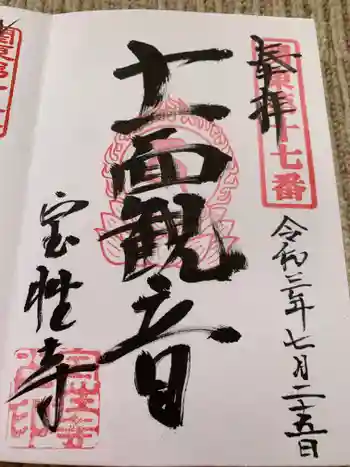 奉拝
関東第十七番
令和三年七月二十五日
十一面観音
宝性寺